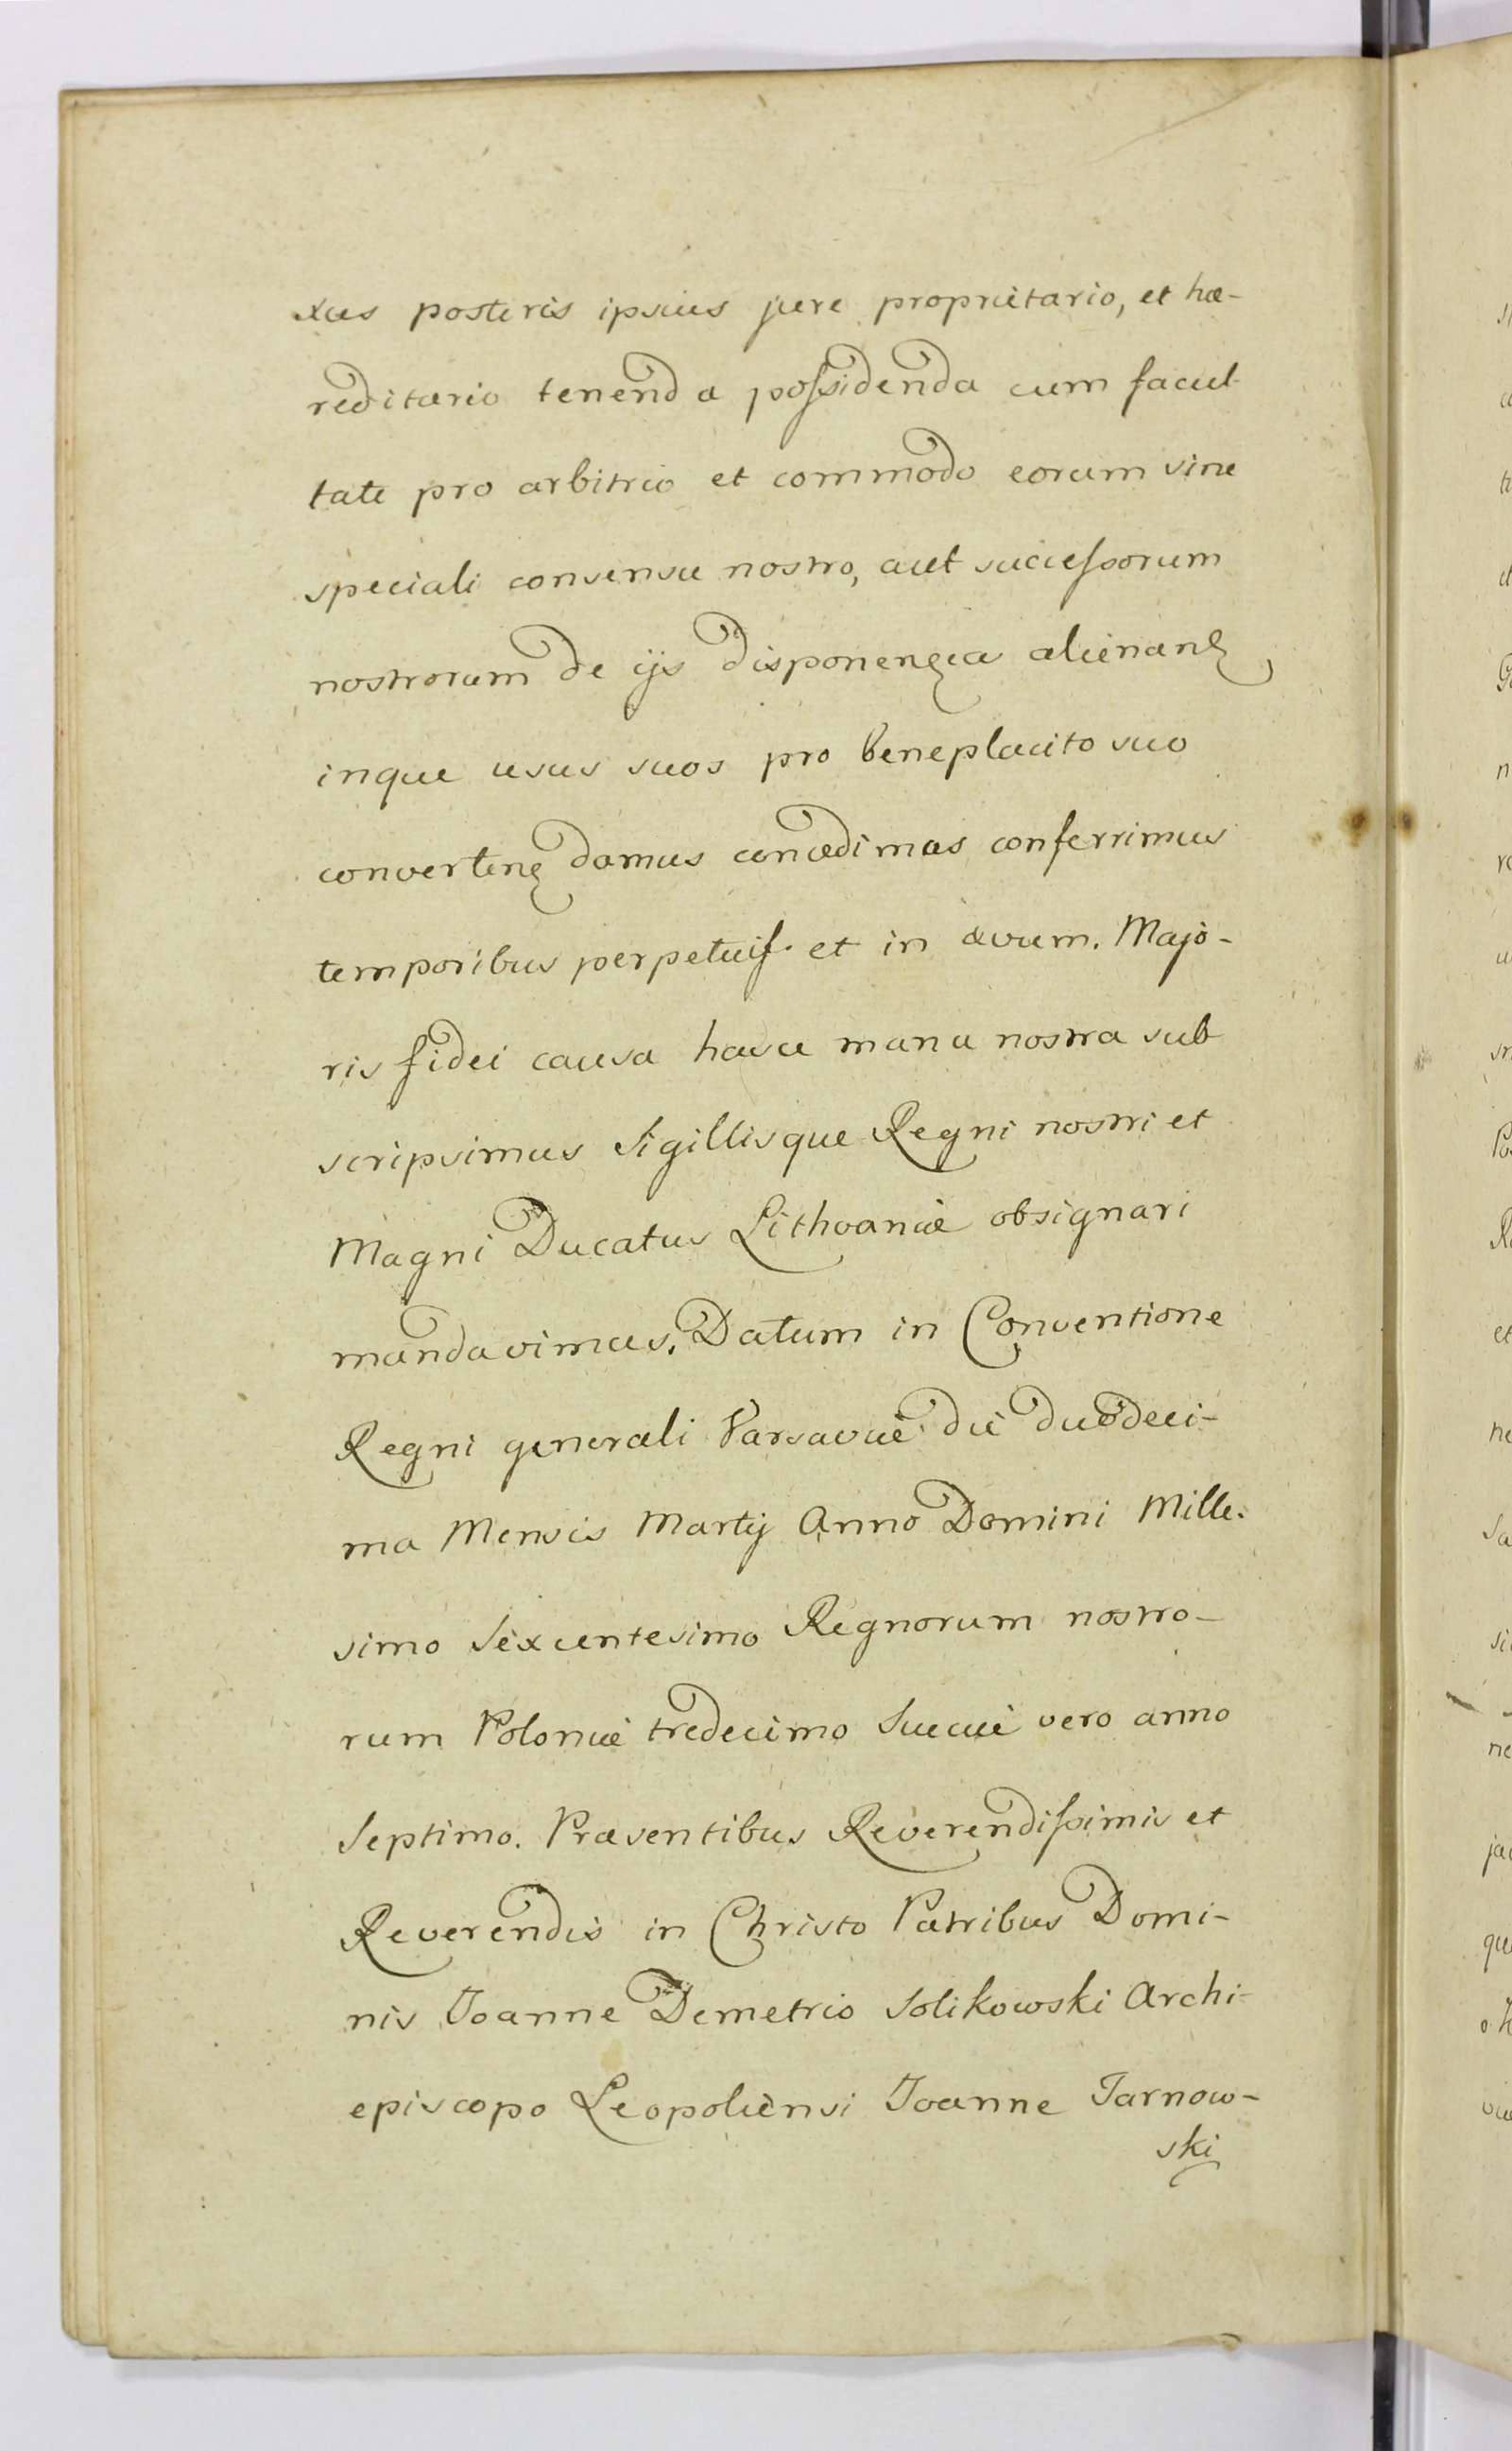 xus posteris ipsius jure proprietario, et hæ-
reditario tenenda possidenda cum facul
tate pro arbitrio et commodo eorum sine
speciali consensu nostro, aut successorum
nostrorum de ijs disponen alienan
inque usus suos pro beneplacito suo
converten damus concedimus conferrimus
temporibus perpetuis et in ævum. Majo-
ris fidei causa hasce manu nostra sub
scripsimus Sigillisque Regni nostri et
Magni Ducatus Lithvaniæ obsignari
mandavimus. Datum in Conventione
Regni generali Varsaviæ die duodeci-
ma Mensis Martij Anno Domini Mille.
simo Sexcentesimo Regnorum nostro-
rum Poloniæ tredecimo Sueciæ vero anno
Septimo. Præsentibus Reverendissimis et
Reverendis in Christo Patribus Domi-
nis Joanne Demetrio Solikowski Archi-
episcopo Leopoliensi Joanne Tarnow-
ski